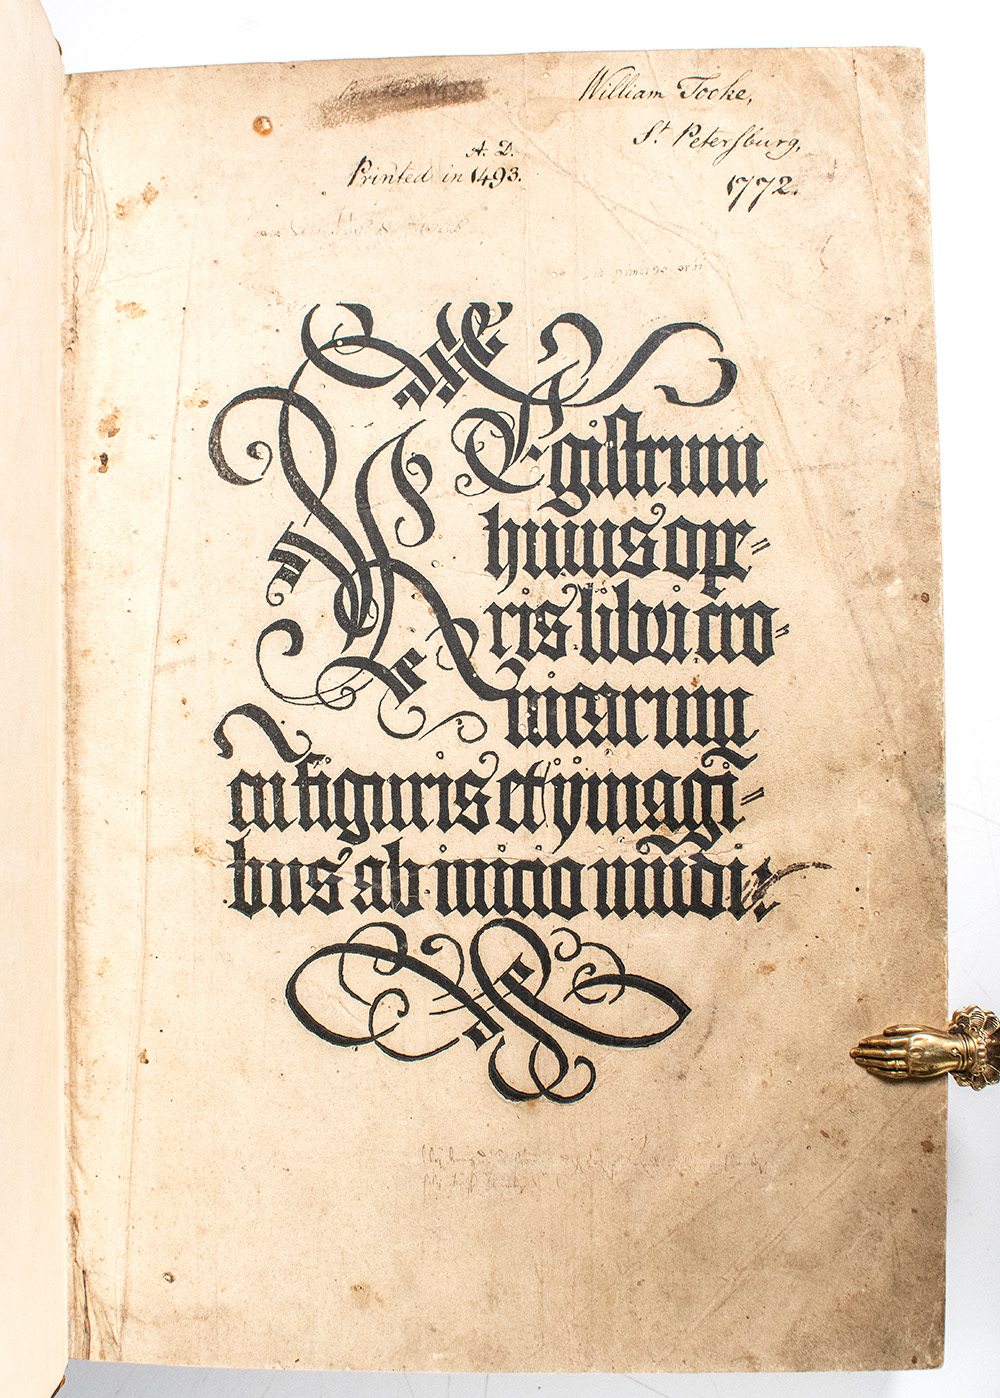 William Tooke,
St Petersburg,
1772.
A. D.
Printed in 1493.
REgistrum
huius ope-
ris libri cro-
nicarum
cū figuris et ymagī-
bus ab inicio mūdi: